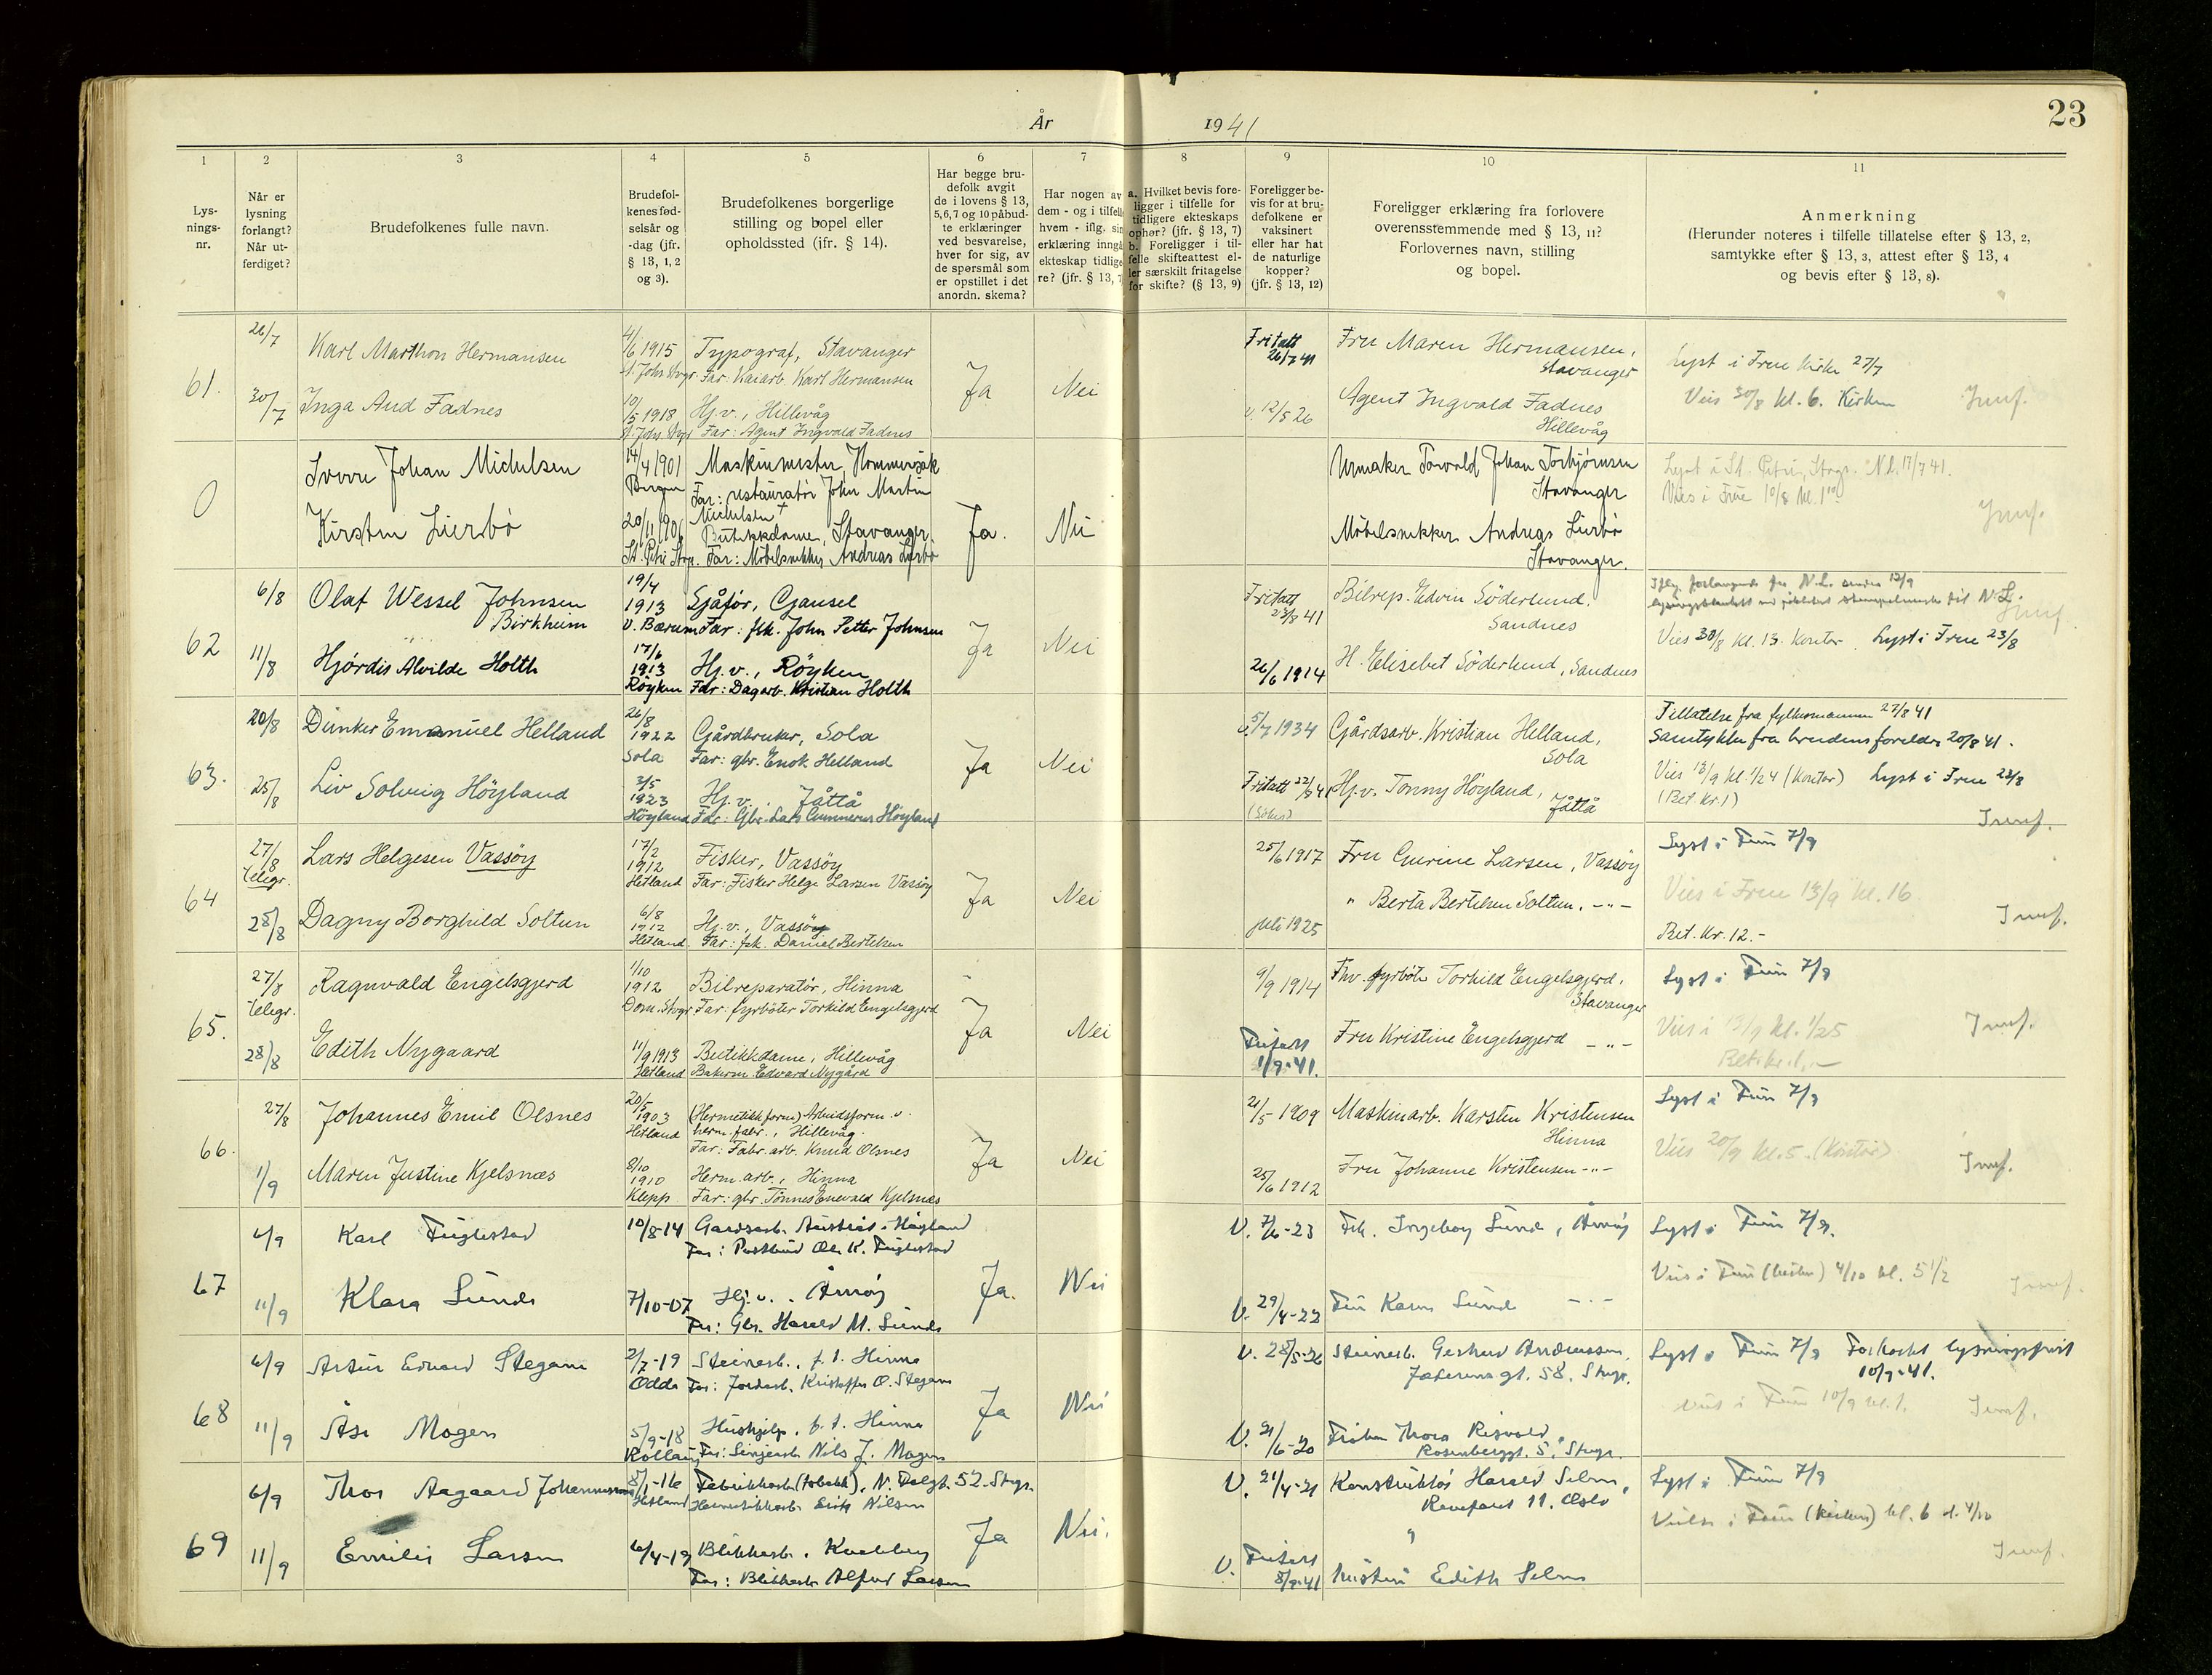 23
År 1941
1 2 3 4 5 6 7 8 9 10 11
Lys-
nings-
nr.
Når er
lysning
forlangt?
Når ut-
ferdiget?
Brudefolkenes fulle navn.
Brudefol-
kenes fød-
selsår og
-dag (jfr.
§ 13, 1, 2
og 3).
Brudefolkenes borgerlige
stilling og bopel eller
opholdssted (ifr. § 14).
Har begge bru-
defolk avgit
de i lovens § 13,
5, 6, 7 og 10 påbud-
te erklæringer
ved besvarelse,
hver for sig, av
de spørsmål som
er opstillet i det
anordn. skema?
Har nogen av
dem - og i tilfelle
hvem - iflg. sin
erklæring inngå
ekteskap tidlige
re? (jfr. § 13, 7
a. Hvilket bevis fore-
ligger i tilfelle for
tidligere ekteskaps
ophør? (jfr. § 13, 7)
b. Foreligger i til-
felle skifteattest el-
ler særskilt fritagelse
for skifte? (§ 13, 9)
Foreligger be-
vis for at bru-
defolkene er
vaksinert
eller har hat
de naturlige
kopper?
(jfr. § 13, 12)
Foreligger erklæring fra forlovere
overensstemmende med § 13, 11?
Forlovernes navn, stilling
og bopel.
Anmerkning
(Herunder noteres i tilfelle tillatelse efter § 13, 2,
samtykke efter § 13, 3, attest efter § 13, 4
og bevis efter § 13, 8).
61.
26/7
30/7
Karl Marthon Hermansen
Inga Aud Fadnes
4/6 1915
St. Johs Svgr.
10/5 1918
St. Johs. Svgr
Typograf, Stavanger
Far: Kaiarb. Karl Hermansen
Hj.v., Hillevåg
Far: Agent Ingvald Fadnes
Ja
Nei
Fritatt
26/7 41
v. 12/5 26
Fru Maren Hermansen,
Stavanger
Agent Ingvald Fadnes
Hillevåg
Lyst i Frue Kirke 27/7
Vies 30/8 kl. 6. Kirken
0
Sverre Johan Michelsen
Kirsten Lierbö
14/4 1901
Bergen
20/11 1906
St. Petri Stvgr.
Maskinmester, Hommersåk
Far: restauratör John Martin
Michelsen +
Butikkdame, Stavanger.
Far: Möbelsnekker Andreas Lierbö
Ja.
Nei
Urmaker Torvald Johan Torbjörnsen
Stavanger
Möbelsnekker Andreas Lierbö
Stavanger.
Lyst i St. Petri, Stvgr. N.l. 17/7 41.
Vies i Frue 10/8 kl. 1
62
6/8
11/8
Olaf Wessel Johnsen
Birkheim
Hjördis Alvilde Holth
19/4
1913
V. Bærum
17/6
1913
Röyken
Sjåför, Gausel
Far: fhk. John Petter Johnsen
Hj.v., Röyken
Far: Dagarb. Kristian Holth
Ja
Nei
Fritatt
23/8 41
26/6 1914
Bilrep. Edvin Söderlund.
Sandnes
H. Elisebet Söderlund, Sandnes
Vies 30/8 kl. 13. Kontor. Lyst i Frue 23/8
63.
20/8
25/8
Dunker Emanuel Helland
Liv Solveig Höyland
26/8
1922
Sola
3/5
1923
Höyland
Gårdbruker, Sola
Far: gbr. Enok Helland
Hj.v. Jåttå
Far: Gbr. Lars Gunnerus Höyland
Ja
Nei
v. 5/7 1934
Fritatt 22/8 41
Gårdsarb. Kristian Helland,
Sola
Hj.v. Tonny Höyland,
Jåttå
Tillatelse fra fylkesmannen 27/8 41
Samtykke fra brudens foreldre 20/8 41.
Vies 13/9 kl. 1/2 4 (Kontor) Lyst i Frue 23/8
(Bet. Kr. 1)
64
27/8
telegr.
28/8
Lars Helgesen Vassöy
Dagny Borghild Soltun
17/2
1912
Hetland
6/8
1912
Hetland
Fisker, Vassöy
Far: Fisker Helge Larsen Vassöy
Hj.v., Vassöy
Far: fsk. Daniel Bertelsen
Ja
Nei
25/6 1917
juli 1925
Fru Gurine Larsen, Vassöy
" Berta Bertelsen Soltun. -"-
Lyst i Frue 7/9
Vies i Frue 13/9 kl. 16
Bet. Kr. 12.-
65.
27/8
telegr.
28/8
Ragnvald Engelsgjerd
Edith Nygaard
1/10
1912
Dom. Stvgr
11/9 1913
Hetland
Bilreparatör, Hinna
Far: fyrböter Torkild Engelsgjerd
Butikkdame, Hillevåg
Bakerm. Edvard Nygård
Ja
Nei
9/9 1914
Fritatt
1/9-41.
Fhv. fyrböter Torkild Engelsgjerd,
Stavanger
Fru Kristine Engelsgjerd -"-
Lyst i Frue 7/9
Vies i 13/9 kl. 1/2 5
Bet. kr. 1,-
66.
27/8
1/9
Johannes Emil Olsnes
Maren Justine Kjelsnæs
20/5
1903
Hetland
8/10
1910
Klepp
(Hermetikkform) Arbeidsform. v.
herm. fabr., Hillevåg.
Far: Fabr. arb. Knud Olsnes
Herm. arb., Hinna
Far: gbr. Tönnes Enevald Kjelsnæs
Ja
Nei
21/5 1909
25/6 1912
Maskinarb. Karsten Kristensen
Hinna
Fru Johanne Kristensen -"-
Lyst i Frue 7/9
Vies 20/9 kl. 5. (Kontor)
67
6/9
11/9
Karl Fuglestad
Klara Sunde
10/8-14
7/10-07
Gardsarb. Austrått. Höyland
Far: Postbud Ole K. Fuglestad
Hj.v. Åmöy
Far: Gbr. Harald M. Sunde
Ja.
Nei
V. 7/6-23
V. 29/4-22
Frk. Ingeborg Sunde, Åmöy
Fru Karen Sunde -"-
Lyst i Frue 7/9.
Vies i Frue (kirken) 4/10 kl. 5 1/2
68
6/9
11/9
Artur Edvard Stegane
Åse Mogen
2/7-19
Odda
5/9-18
Rollag
Steinarb., f.t. Hinna
Far: Jordarb. Kristoffer O. Stegane
Hushjelp, f.t. Hinna
Far: Linjearb. Nils J. Mogen
Ja
Nei
V. 28/5-26
V. 21/6-20
Steinarb. Gerhard Andreassen,
Jæderens gt. 58. Stvgr.
Fröken Thora Risvold,
Rosenberggt. 5, Stvgr.
Lyst i Frue 7/9 Forkortet lysningsfrist
10/9-41.
Vies i Frue 10/9 kl. 1.
69
6/9
11/9
Thor Aagaard Johannessen
Emilie Larsen
8/1-16
Hetland
6/4-19
Fabrikkarb. (tobakk), N. Dalgt. 52. Stvgr.
Hermetikkarb. Erik Nilsen
Blikkarb. Kvaleberg
Far: Blikkarb. Alfred Larsen
Ja
Nei.
V. 21/4-21
V. Fritatt
8/9-41
Konstruktör Harald Selmer,
Revefaret 11. Oslo
Edith Selmer
Lyst i Frue 7/9
Vielse i Frue (kirken) kl. 6 d. 4/10